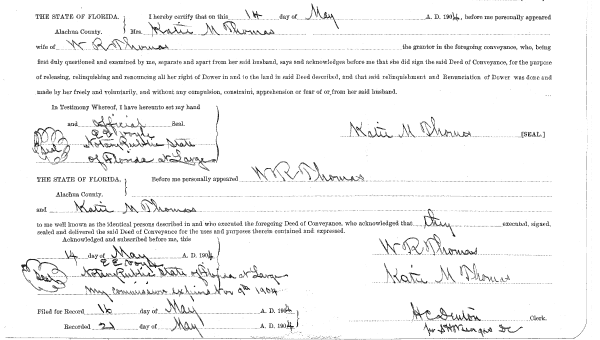 THE STATE OF FLORIDA. I hereby certify that on this 14 day of May A. D. 1904, before me personally appeared
Alachua County. Mrs. Katie M Thomas
wife of W R Thomas the grantor in the foregoing conveyance, who, being
first duly questioned and examined by me, separate and apart from her said husband, says and acknowledges before me that she did sign the said Deed of Conveyance, for the purpose
of releasing, relinquishing and renouncing all her right of Dower in and to the land in said Deed described, and that said relinquishment and Renunciation of Dower was done and
made by her freely and voluntarily, and without any compulsion, constraint, apprehension or fear of or from her said husband.
In Testimony Whereof, I have hereunto set my hand
and official Seal. Katie M Thomas [SEAL.]
Seal Notary Public State
of Florida at Large
THE STATE OF FLORIDA. Before me personally appeared W R Thomas
Alachua County.
and Katie M Thomas
to me well known as the identical persons described in and who executed the foregoing Deed of Conveyance, who acknowledged that they executed, signed,
sealed and delivered the said Deed of Conveyance for the uses and purposes therein contained and expressed.
Acknowledged and subscribed before me, this
14 day of May A. D. 1904 W R Thomas
Seal Notary Public State of Florida at Large Katie M Thomas
My commission expires Nov 9th 1904
Filed for Record 16 day of May A. D. 1904 H C Denton Clerk.
Recorded 21 day of May A. D. 1904